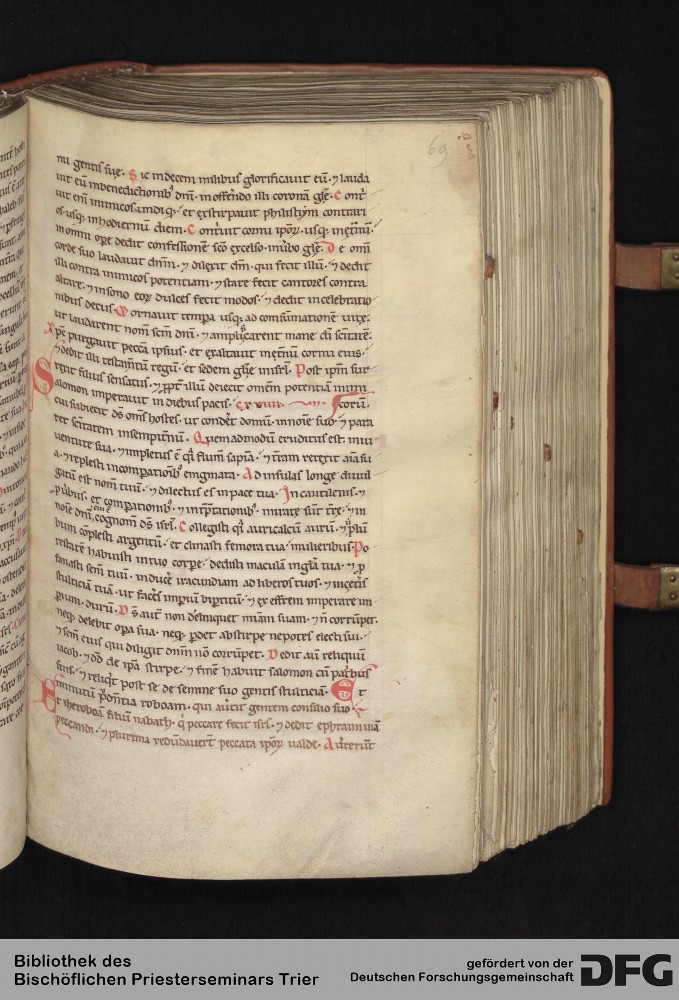 69
nu gentis suę. Sic in decem milibus glorificauit eū. ⁊ lauda
uit eū in benedictionib' dñi. in offerendo illi coronā glę. Cont'
uit eni inimicos undiq;. et exstirpauit philistiym contrari
os usq; in hodiernū diem. Cont'uit cornu ipoꝝ. usq; inet'nū.
in omni ope dedit confessionē sc̄o excelso. in ūbo glę. De om̄i
corde suo laudauit dn̄m. ⁊ dilexit dm̄. qui fecit illū. ⁊ dedit
illi contra inimicos potentiam. ⁊ stare fecit cantores contra
altare. ⁊ in sono eoꝝ dulces fecit modos. ⁊ dedit in celebratio
nibus decus. ⁊ ornauit tempa usq; ad consūmationē uitę.
ut laudarent nom̄ sc̄m dn̄i. ⁊ amplificarent mane dī sc̄itatē.
xp̄c purgauit peccā ipsius. et exaltauit inet'nū cornu eius.
⁊ dedit illi testam̄tū regū. et sedem glę in isrl. Post ipm̄ sur
rexit filius sensatus. ⁊ ꝑpt' illū deiecit om̄em potentiā inimi
Salomon imperauit in diebus pacis. coꝝ.
cui subiecit ds̄ om̄s hostes. ut condet domū in noīe suo. ⁊ para
ret sc̄itatem in sempit'nū. Quemadmodū eruditus est in iu
uentute sua. ⁊ impletus ē q̄i flum̄ sapīa. ⁊ t'ram retexit aīa su
a. ⁊ replesti in comparationib' enigmata. Ad insulas longe diuul
gatū est nom̄ tuū. ⁊ dilectus es in pace tua. In cantilenis. ⁊
ꝓūbiis. et comparationib'. ⁊ int'p̄tationib'. mirate sūt t'rę. ⁊ in
noīe dn̄i. cui ē cognom̄ ds̄ isrl. Collegisti q̄i auricalcū aurū. ⁊ ut plū
bum cōplesti argentū. et inclinasti femora tua mulieribus. Po
testatē habuisti in tuo corpe. dedisti maculā in glā tua. ⁊ ꝓ
fanasti sem̄ tuū. inducē iracundiam ad liberos tuos. ⁊ incitatis
stultitiā tuā. ut faceres imperiū bipertitū. ⁊ ex effrem imperare im
perium durū. Ds̄ aut' non derelinquet miā̄m suam. ⁊ n̄ corrūpet.
neq; delebit opa sua. neq; perdet ab stirpe nepotes electi sui.
⁊ sem̄ eius qui diligit dn̄m nō corrūpet. Dedit aū reliquū
iacob. ⁊ dd̄ de ipa stirpe. ⁊ finē habuit salomon cū patribus
suis. ⁊ reliq̄t post se de semine suo gentis stultitiā. Et
imminutū prudentia roboam. qui au'tit gentem consilio suo.
Et iheroboā filiū nabath. q̄ peccare fecit isrl. ⁊ dedit ephraim uiā
peccandi. ⁊ plurima redūdauer̄t peccata ipoꝝ ualde. Au'terūt
Bibliothek des
Bischöflichen Priesterseminars Trier
gefördert von der
Deutschen Forschungsgemeinschaft
DFG